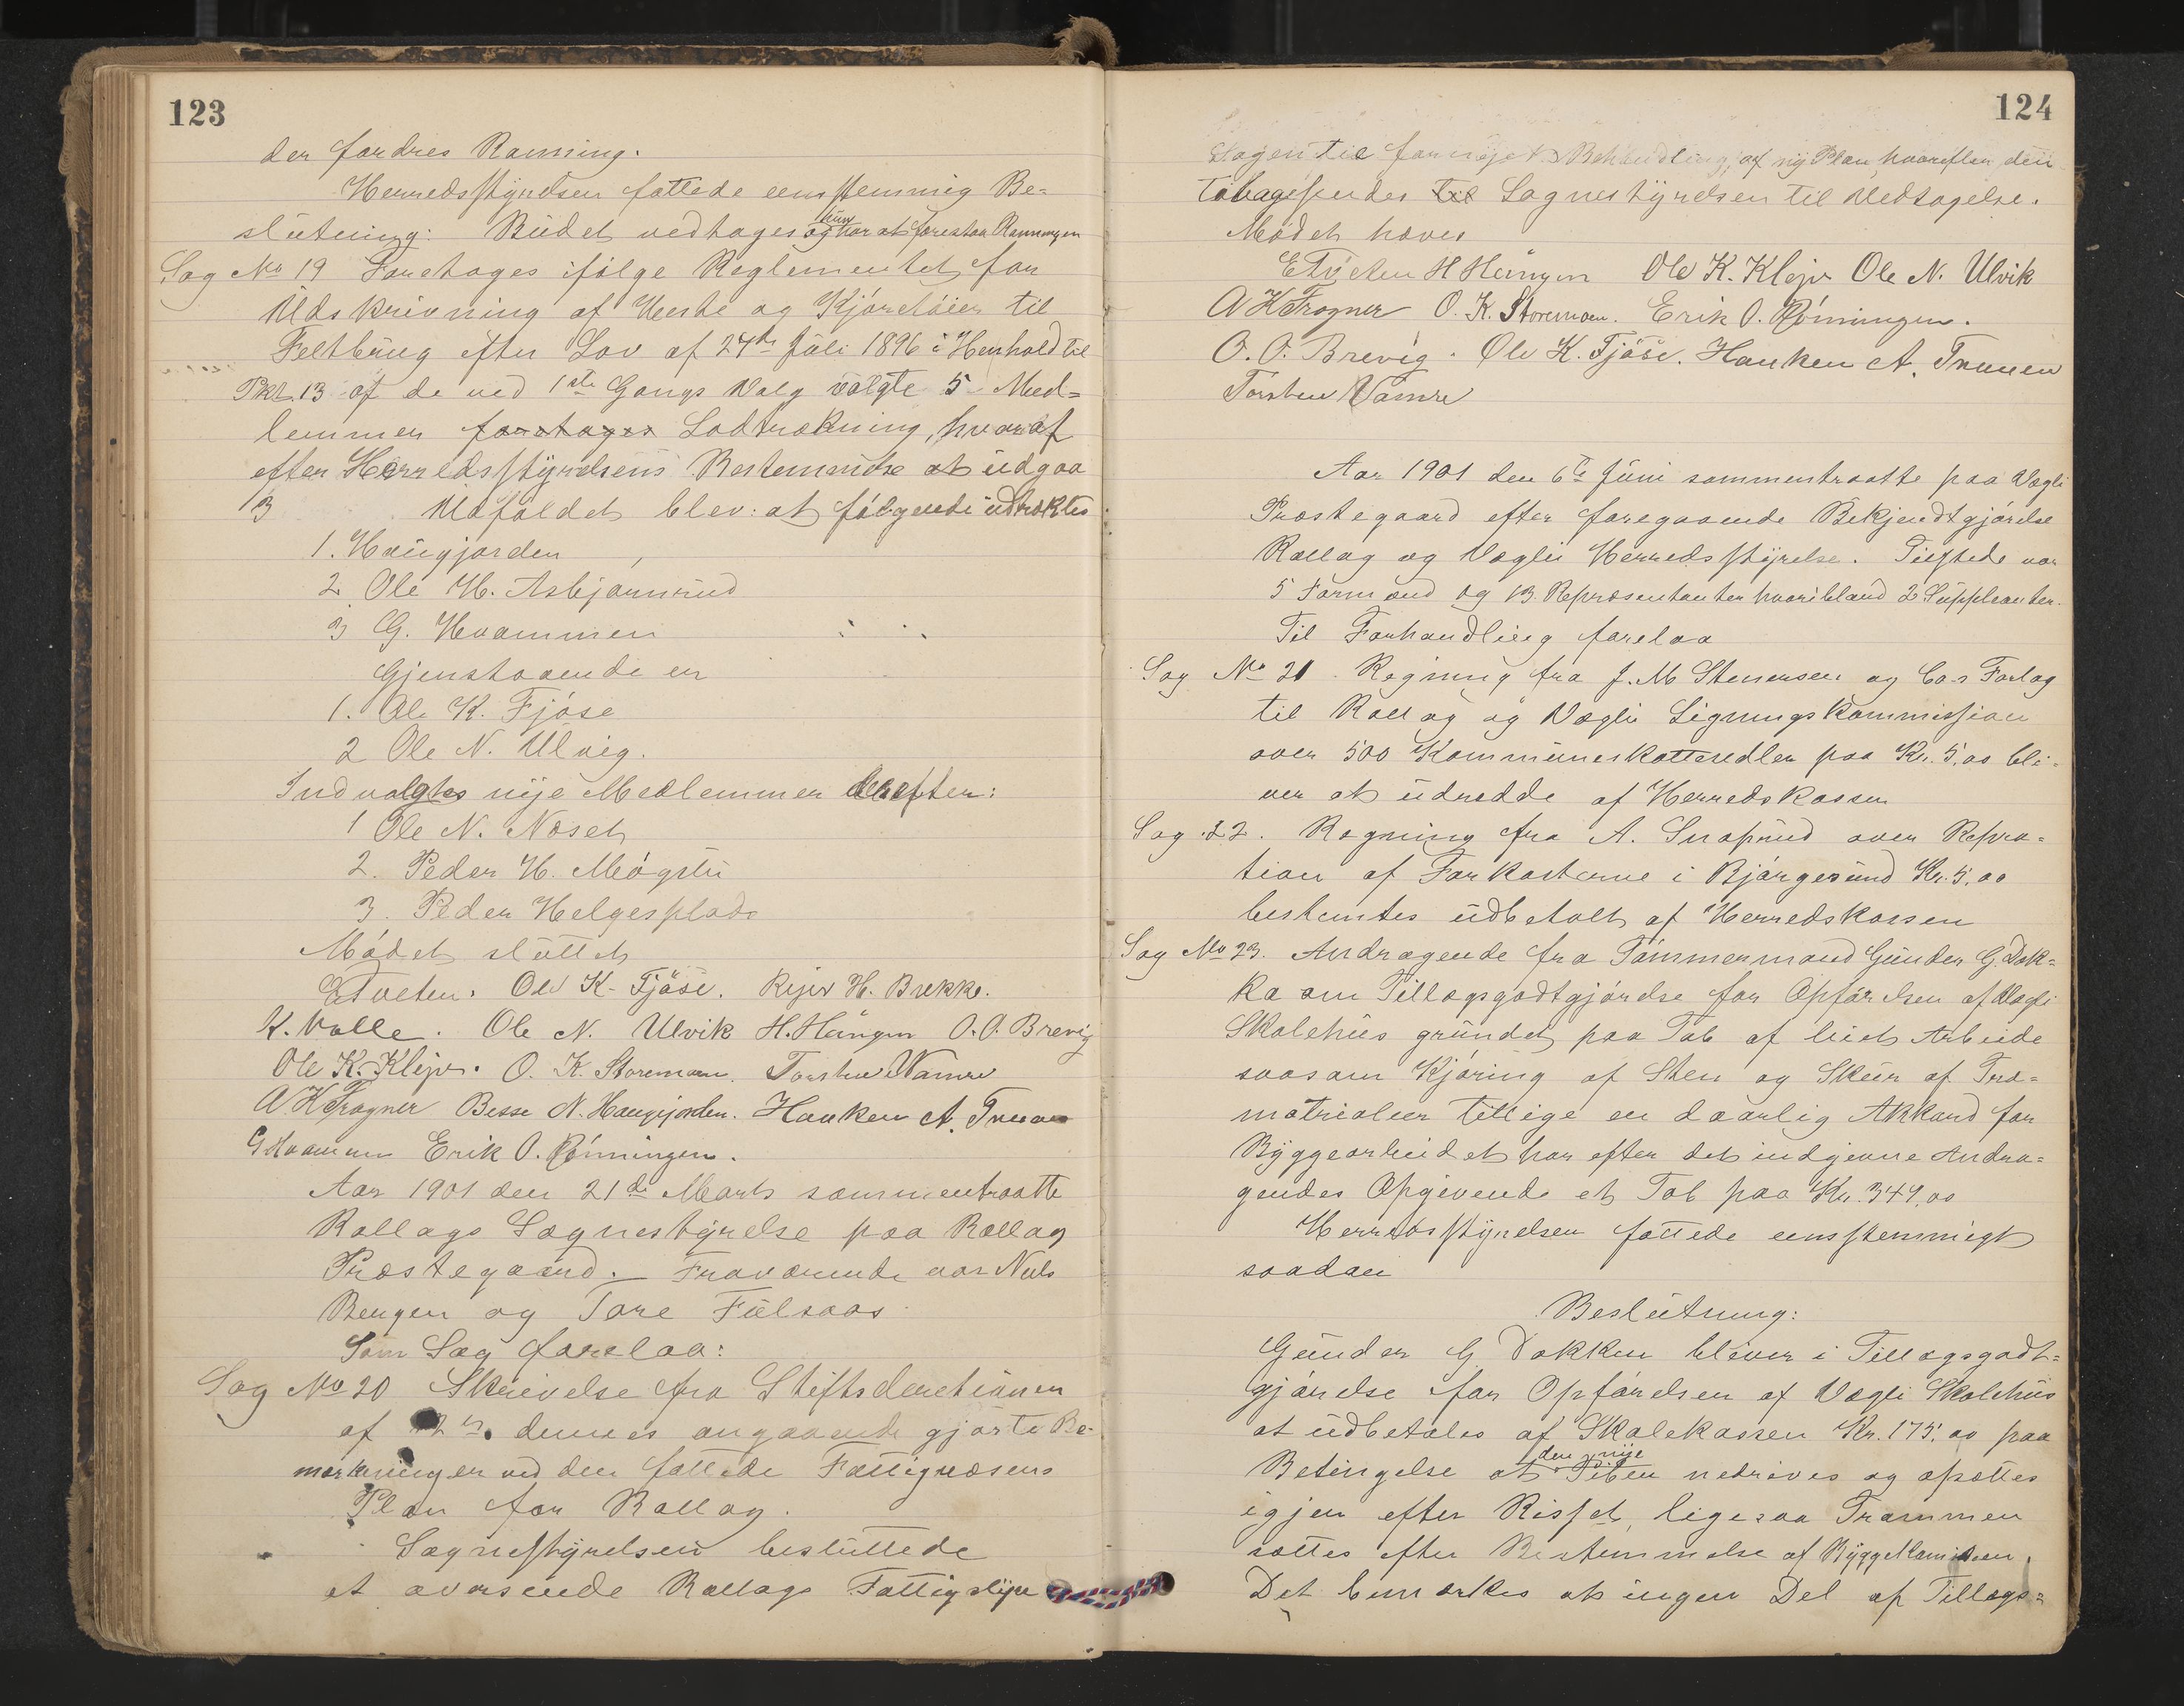 123
der fordres Ramning.
Herredsstyrelsen fattede eenstemmig Be=
slutning: Budet vedtages og hun har at forestaa Ramningen
Sag No 19 Foretages ifølge Reglementet for
Udskrivning af Heste og Kjøretøier til
Feltbrug efter Lov af 27de Juli 1896 i Henhold til
Pkt 13 af de ved 1ste Gangs Valg valgte 5 Med=
lemmer foretages Lodtrækning, hvoraf
efter Herredsstyrelsens Bestemmelse at udgaa
3 Udfaldet blev: at følgende udtræktes
1. Haugjorden
2 Ole H. Asbjørnrud
3 G. Hvammen
Gjenstaaende er
1. Ole K. Fjøse
2 Ole N. Ulvig.
Indvalgtes nye Medlemmer derefter:
1 Ole N. Næset
2. Peder H. Møgsti
3. Peder Helgesplads
Mødet sluttet
ETveten. Ole K. Fjøse. Rejer H. Brekke.
K. Valle. Ole N. Ulvik H. Haugen O.O. Brevig
Ole K. Klejv. O. K. Storemoen. Torsten Vamre
A K Frogner Besse N. Haugjorden. Haaken A. Traaen
G Hvammen Erik O. Rønningen.
Aar 1901 den 21de Marts sammentraatte
Rollags Sognestyrelse paa Rollag
Præstegaard. Fraværende var Nils
Bergen og Tore Fulsaas
Som Sag forelaa:
Sag No 20 Skrivelse fra Stiftsdirektionen
af 12te dennes angaaende gjorte Be-
mærkninger ved den fattede Fattigvæsens
Plan for Rollag.
Sognestyrelsen besluttede
at oversende Rollags Fattigstyre
124
Sagen til fornyet Behandling, af ny Plan, hvorefter den
tilbagesendes til Sognestyrelsen til Vedtagelse.
Mødet hævet
ETveten H Haugen Ole K. Klejv Ole N. Ulvik
A K Frogner O. K. Storemoen. Erik O. Rønningen.
O. O. Brevig. Ole K. Fjøse. Haaken A. Traaen
Torsten Vamre
Aar 1901 den 6te Juni sammentraatte paa Vægli
Præstegaard efter foregaaende Bekjendtgjørelse
Rollag og Vægli Herredsstyrelse. Tilstede var
5 Formænd og 13 Repræsentanter hvoriblandt 2 Suppleanter.
Til Forhandling forelaa
Sag No 21. Regning fra J. M Stenersen og Co-s Forlag
til Rollag og Vægli Ligningskommission
over 500 Kommuneskattesedler paa Kr. 5,00 bli=
ver at udredde af Herredskassen
Sag 22. Regning fra A. Snaprud over Repra=
tion af Farkosterne i Bjørgesund Kr. 5,00
bestemtes udbetalt af Herredskassen
Sag No 23. Andragende fra Tømmermand Gunder G. Dok=
ka om Tillægsgodtgjørelse for Opførelsen af Vægli
Skolehus grundet paa Tab af leiet Arbeide
saasom Kjøring af Sten og Skur af Træ=
matrialier tillige en daarlig Akkord for
Byggearbeidet har efter det indgivne Andra=
gendes Opgivende et Tab paa Kr. 349,00
Herredsstyrelsen fattede eensstemmigt
saadan
Beslutning:
Gunder G Dokken bliver i Tillægsgodt=
gjørelse for Opførelsen af Vægli Skolehus
at udbetales af Skolekassen Kr. 175,00 paa
Betingelse at den nye Piben nedrives og opsættes
igjen efter Risset, ligesaa Trammen
sættes efter Bestemmelse af Byggekomiteen.
Det bemærkes at ingen Del af Tillægs=